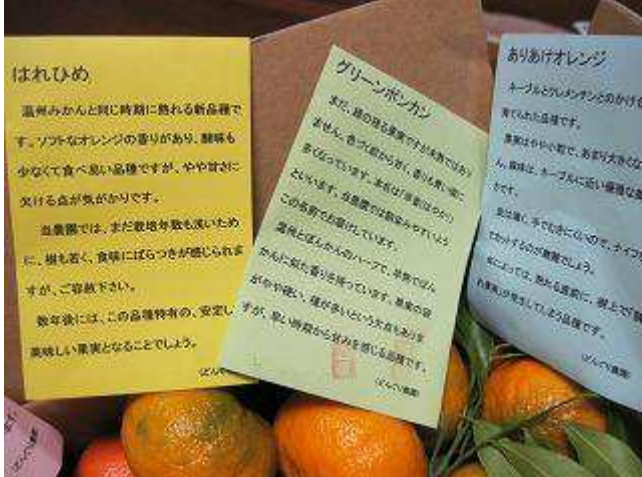 はれひめ
温州みかんと同じ時期に熟れる新品種で
す。ソフトなオレンジの香りがあり、酸味も
少なくて食べ易い品種ですが、やや甘さに
欠ける点が気がかりです。
当農園では、まだ栽培年数も浅いため
に、樹も若く、食味にばらつきが感じられま
すが、ご容赦下さい。
数年後には、この品種特有の、安定し
美味しい果実となることでしょう。
グリーンポンカン
まだ、緑の残る果実ですが未熟ではあり
ません。色づく前から甘く、香りも青い頃に
多くなっています。本名は「早香(はやか)」
といいます。当農園では馴染みやすいよう
この名前でお届けしています。
温州とぽんかんのハーフで、早熟でぽん
かんに似た香りを持っています。果実の袋
がやや硬い、種が多いという欠点もありま
すが、早い時期から甘みを感じる品種です。
(どんぐり農園)
ありあけオレンジ
ネーブルとクレメンチンとのかけ
育てられた品種です。
果実はやや小粒で、あまり大きくな
ん。食味は、ネーブルに近い優雅な
力です。
皮は薄く、手でむきにくいので、ナイフ
でカットするのが無難でしょう。
年によっては、熟れる直前に、樹上で
が発生してしまう品種です。
(どんぐり農園)